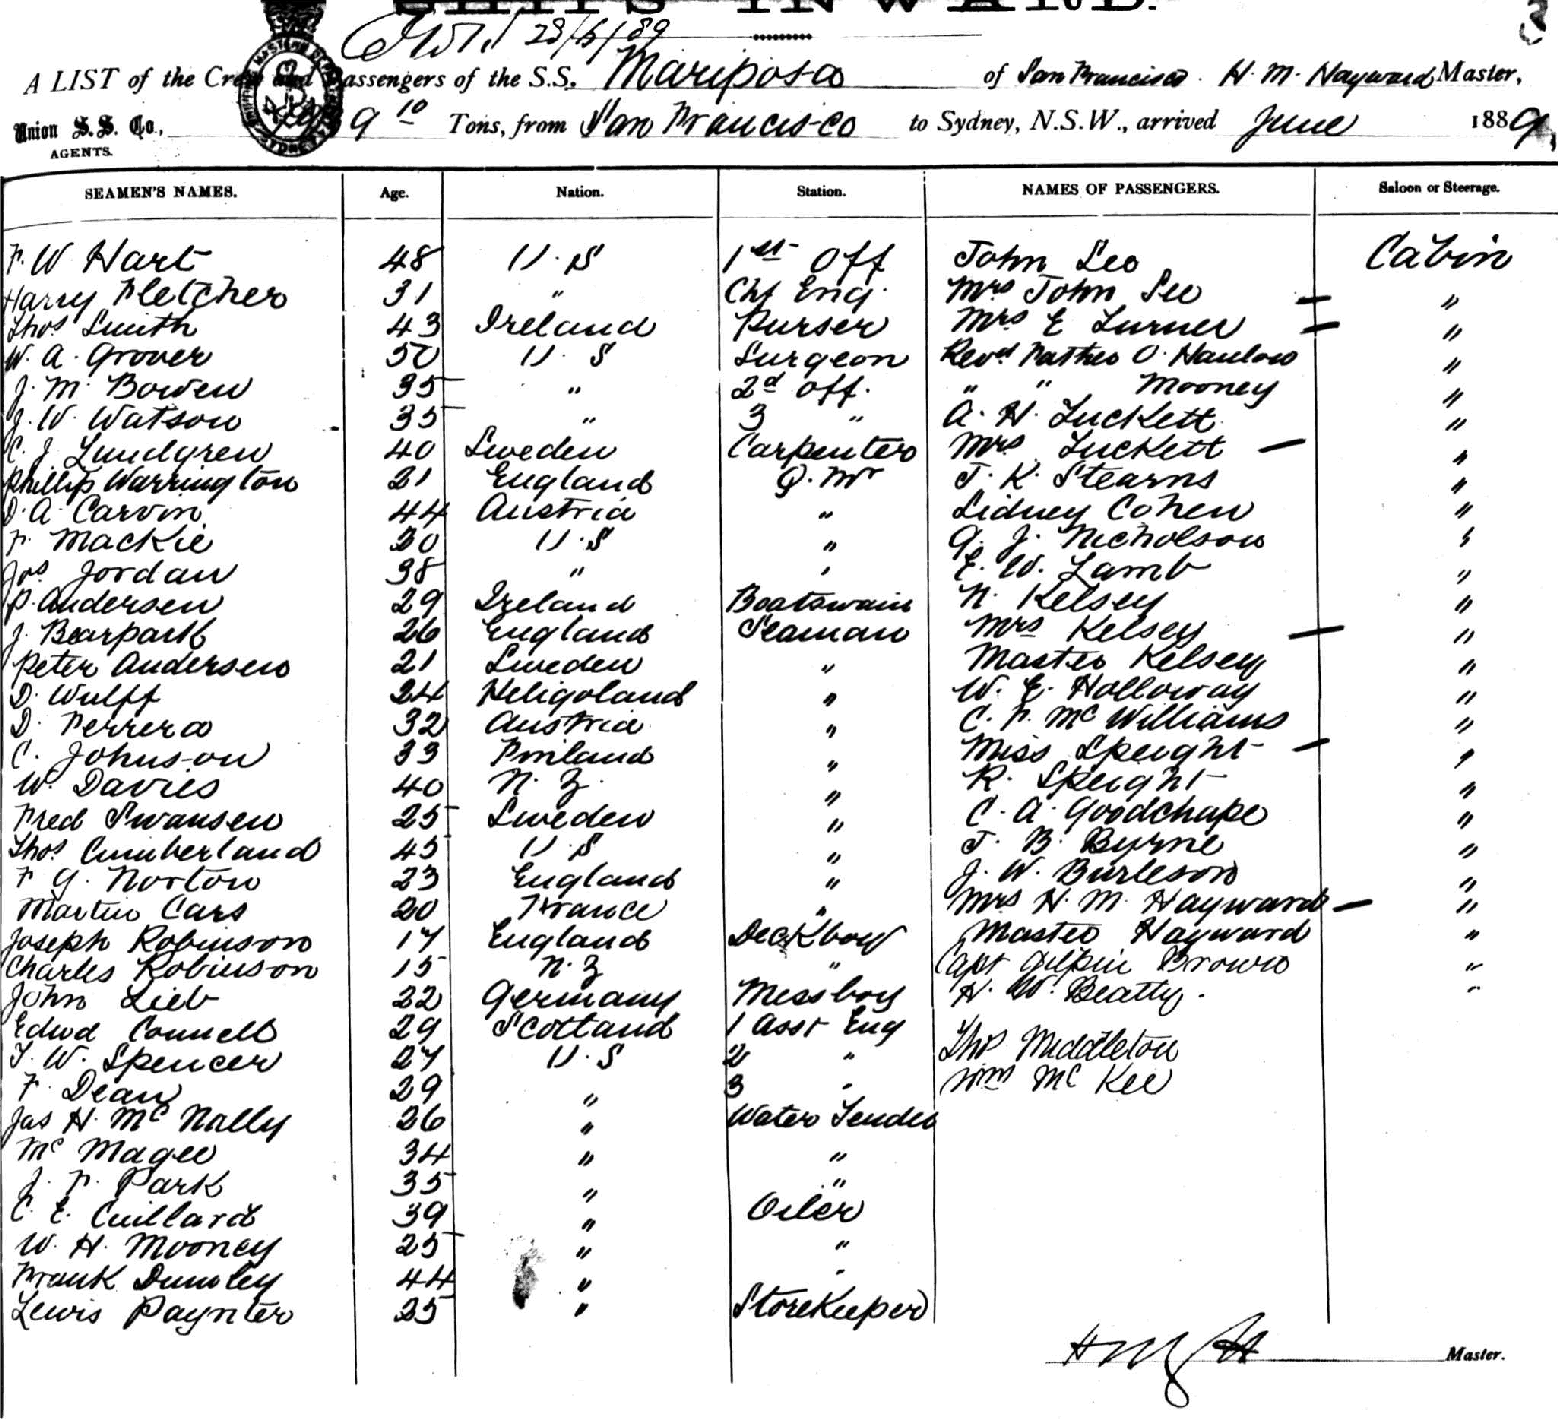 SHIPS INWARD.
28/5/89
A LIST of the Crew and Passengers of the S.S. Mariposa of San Francisco H. M. Hayward Master,
Union S. S. Co., 9 10 Tons, from San Francisco to Sydney, N.S.W., arrived June 1889,
AGENTS.
SEAMEN'S NAMES. Age. Nation. Station. NAMES OF PASSENGERS. Saloon or Steerage.
F. W Hart 48 U. S 1st Off John Leo Cabin
Harry Fletcher 31 " Chf Eng. Mrs John Leo — "
Thos Smith 43 Ireland Purser Mrs E Turner — "
W. A. Grover 50 U. S Surgeon Revd Father O'Hanlon "
J. M. Bowen 35 " 2d Off. " " Mooney "
J. W. Watson 35 " 3 " A. H. Luckett "
C. J. Lundgren 40 Sweden Carpenter Mrs Luckett — "
Phillip Warrington 21 England Q. Mr J. K. Stearns "
D. A. Carvin 44 Austria " Sidney Cohen "
F. Mackie 30 U. S " G. J. Nicholson "
Jos Jordan 38 " " E. W. Lamb "
P. Andersen 29 Ireland Boatswain N. Kelsey "
J. Bearpark 26 England Seaman Mrs Kelsey — "
Peter Andersen 21 Sweden " Master Kelsey "
D. Wulff 24 Heligoland " W. E. Holloway "
D. Ferrera 32 Austria " C. F. McWilliams "
C. Johnson 33 Finland " Miss Speight — "
W. Davies 40 N. Z. " R. Speight "
Fred Swansen 25 Sweden " C. A. Goodchape "
Thos Cumberland 45 U S " J. B. Byrne "
F G. Norton 23 England " J. W. Burleson "
Martin Cars 20 France " Mrs H. M. Hayward — "
Joseph Robinson 17 England Deckboy Master Hayward "
Charles Robinson 15 N. Z " Capt Gilpin Brown "
John Lieb 22 Germany Messboy H. W. Beatty. "
Edwd Connell 29 Scotland 1 Asst Eng
T. W. Spencer 27 U. S 2 " Thos Middleton
F. Dean 29 " 3 " Wm McKee
Jas H. McNally 26 " Water Tender
Mc Magee 34 " "
J. F. Park 35 " "
C. E. Cuillard 39 " Oiler
W. H. Mooney 25 " "
Frank Dumley 44 " "
Lewis Paynter 25 " Storekeeper
Master.